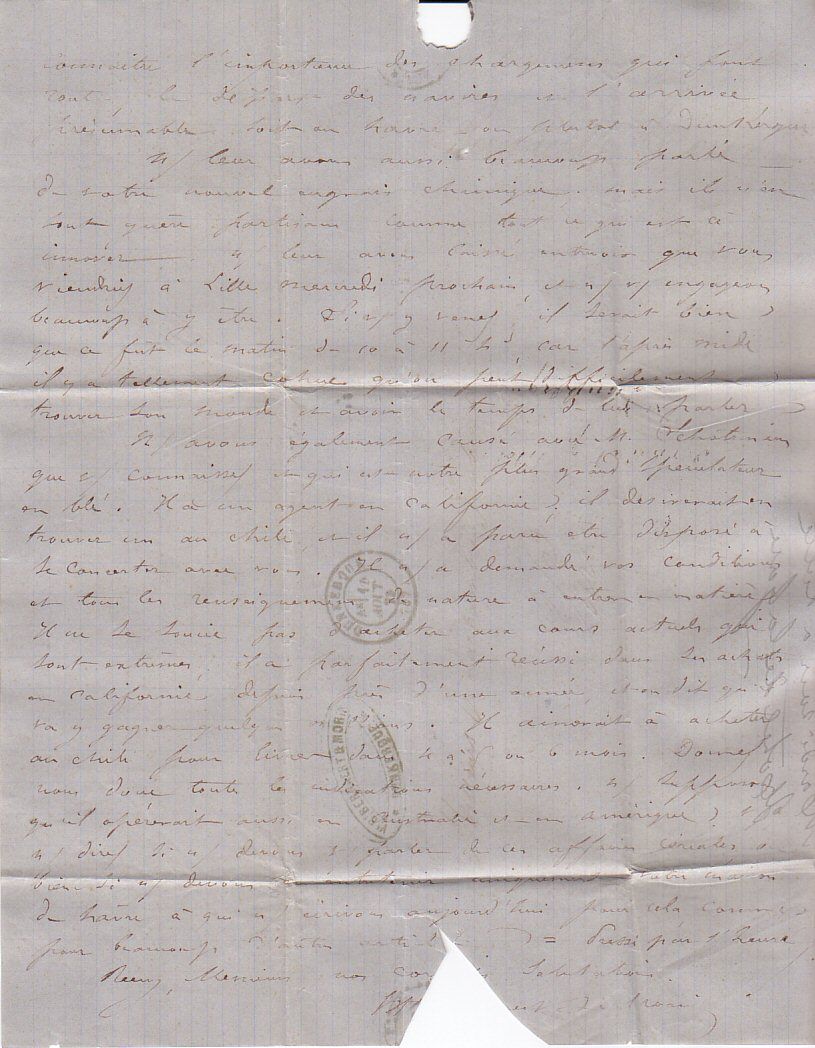 connaitre l'importance des chargemens qui font
route, le départ des navires et l'arrivée
présumable soit au havre ou plutot à Dunkerque
N/ leur avons aussi beaucoup parlé
de votre nouvel engrais chimique, mais ils n'en
sont guère partisans comme tout ce qui est à
innover. N/ leur avons laissé entrevoir que vous
viendriez à Lille mercredi prochain, et n/ v/ engageons
beaucoup à y être. Si v/ y venez, il serait bien
que ce fut le matin de 10 à 11 hs car l'après midi
il y a tellement cohue qu'on peut difficilement
trouver son monde et avoir le temps de lui parler
N/ avons également causé avec M. Schotsmans
que v/ connaissez et qui est notre plus grand spéculateur
en blé. Il a un agent en Californie, il désirerait en
trouver un au chili, et il n/ a paru etre disposé à
se concerter avec vous. Il n/ a demandé vos conditions
et tous les renseignements de nature à entrer en matière
Il ne se soucie pas d'acheter aux cours actuels qui
sont extrêmes, il a parfaitement réussi dans ses achats
en Californie, depuis près d'une année, et on dit qu'il
va y gagner quelques millions. Il aimerait à acheter
au chili pour livrer dans 4 à 5 ou 6 mois. Donnez
nous donc toute les indications nécessaires. N/ supposons
qu'il opérerait aussi en Australie et en amérique
n/ direz si n/ devons v/ parler de ces affaires céréales ou
bien si n/ devons entretenir uniquement votre maison
du havre à qui n/ écrivons aujourd'hui pour cela comme
pour beaucoup d'autres articles = Pressé par l'heure
Recevez, Messieurs nos salutations
DUNKERQUE
DUNKERQUE